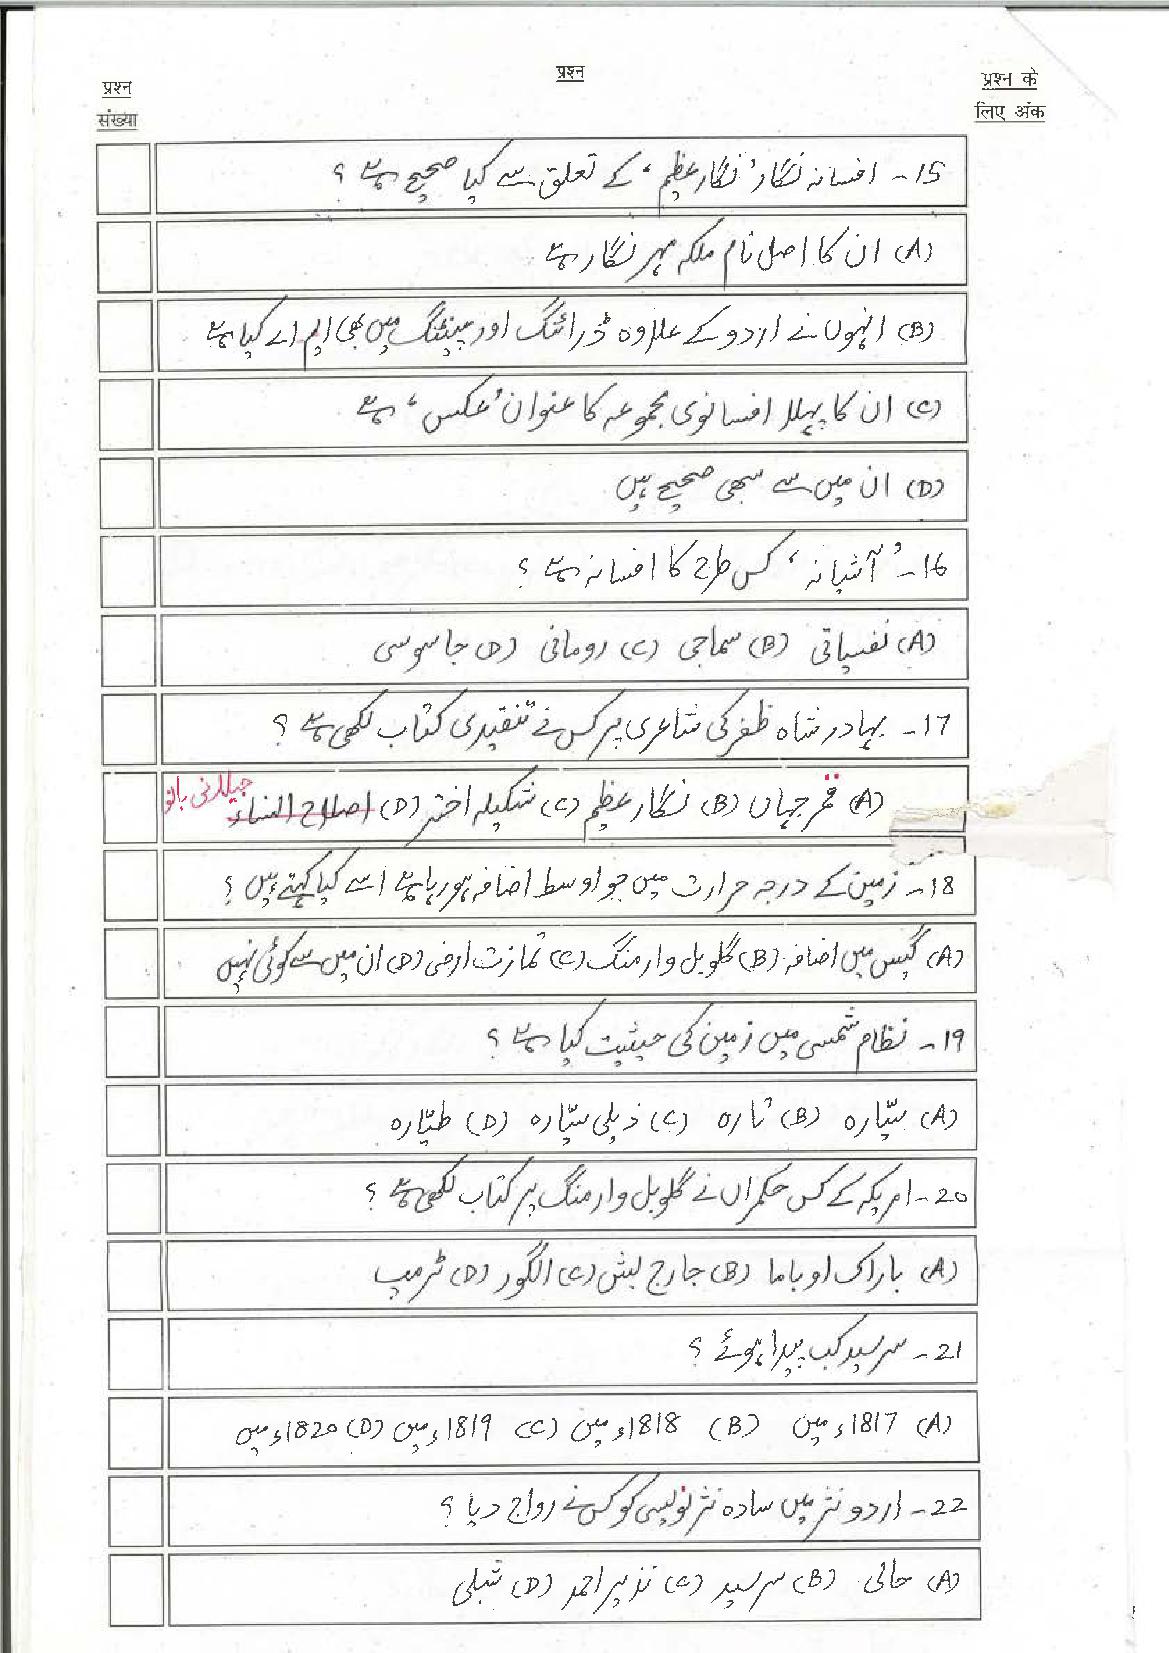 प्रश्न संख्या
प्रश्न
प्रश्न के लिए अंक
15- افسانہ نگار 'نگار عظیم' کے تعلق سے کیا صحیح ہے ؟
(A) ان کا اصل نام ملکہ مہر نگار ہے
(B) انہوں نے اردو کے علاوہ ڈرائنگ اور پینٹنگ میں بھی ایم اے کیا ہے
(C) ان کا پہلا افسانوی مجموعہ کا عنوان 'عکس' ہے
(D) ان میں سے سبھی صحیح ہیں
16- 'آشیانہ' کس طرح کا افسانہ ہے ؟
(A) نفسیاتی (B) سماجی (C) رومانی (D) جاسوسی
17- بہادر شاہ ظفر کی شاعری پر کس نے تنقیدی کتاب لکھی ہے ؟
(A) قمر جہاں (B) نگار عظیم (C) شکیلہ اختر (D) اصلاح النساء جیلانی بانو
18- زمین کے درجہ حرارت میں جو اوسط اضافہ ہو رہا ہے اسے کیا کہتے ہیں ؟
(A) گیس میں اضافہ (B) گلوبل وارمنگ (C) تمازت ارضی (D) ان میں سے کوئی نہیں
19- نظام شمسی میں زمین کی حیثیت کیا ہے ؟
(A) سیّارہ (B) تارہ (C) ذیلی سیّارہ (D) طیّارہ
20- امریکہ کے کس حکمراں نے گلوبل وارمنگ پر کتاب لکھی ہے ؟
(A) باراک اوباما (B) جارج بش (C) الگور (D) ٹرمپ
21- سرسید کب پیدا ہوئے ؟
(A) 1817ء میں (B) 1818ء میں (C) 1819ء میں (D) 1820ء میں
22- اردو نثر میں سادہ نثر نویسی کو کس نے رواج دیا ؟
(A) حالی (B) سرسید (C) نذیر احمد (D) شبلی